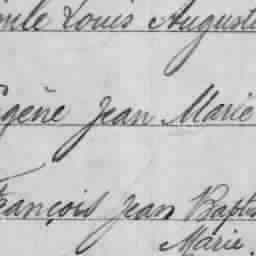 mile Louis Augusti
gène Jean Marie
François Jean Bapti
Marie.